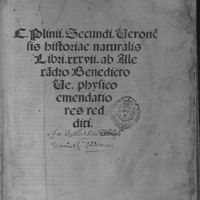 C. Plinii. Secundi. Veronē
sis historiae naturalis
Libri. xxxvii. ab Ale
xādro Benedicto
Ve. physico
emendatio
res red
diti.